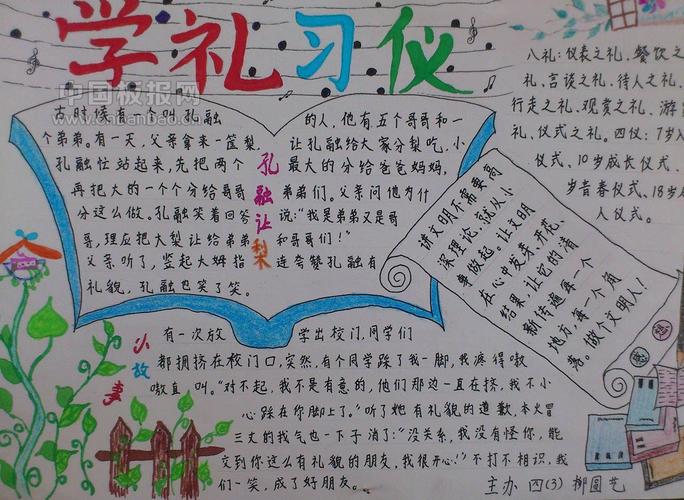 学礼习仪
中国板报网
www.banbao.net
古时候有一个叫孔融
的人，他有五个哥哥和一
个弟弟。有一天，父亲拿来一筐梨，
让孔融给大家分梨吃，小
孔融忙站起来，先把两个
最大的分给爸爸妈妈，
再把大的一个个分给哥哥
弟弟们。父亲问他为什
分这么做。孔融笑着回答
说：“我是弟弟又是哥
哥，理应把大梨让给弟弟
和哥哥们！”
父亲听了，竖起大姆指
连夸赞孔融有
礼貌，孔融也笑了笑。
孔融让梨
八礼：仪表之礼、餐饮之
礼、言谈之礼、待人之礼、
行走之礼、观赏之礼、游
礼、仪式之礼。四仪：7岁入
仪式、10岁成长仪式、
岁青春仪式、18岁
人仪式。
讲文明不需要高
深理论，就从小
事做起。让文明
在心中发芽、开花、
结果，让它的清
新传遍每一个
地方，每一个角
落。做个文明人！
小故事
有一次放
学出校门，同学们
都拥挤在校门口，突然，有个同学踩了我一脚，我疼得嗷
嗷直叫。“对不起，我不是有意的，他们那边一直在挤，我不小
心踩在你脚上了。”听了她有礼貌的道歉，本火冒
三丈的我气也一下子消了：“没关系，我没有怪你，能
交到你这么有礼貌的朋友，我很开心！”不打不相识，我
们一笑，成了好朋友。
主办 四(3) 柳圆艺